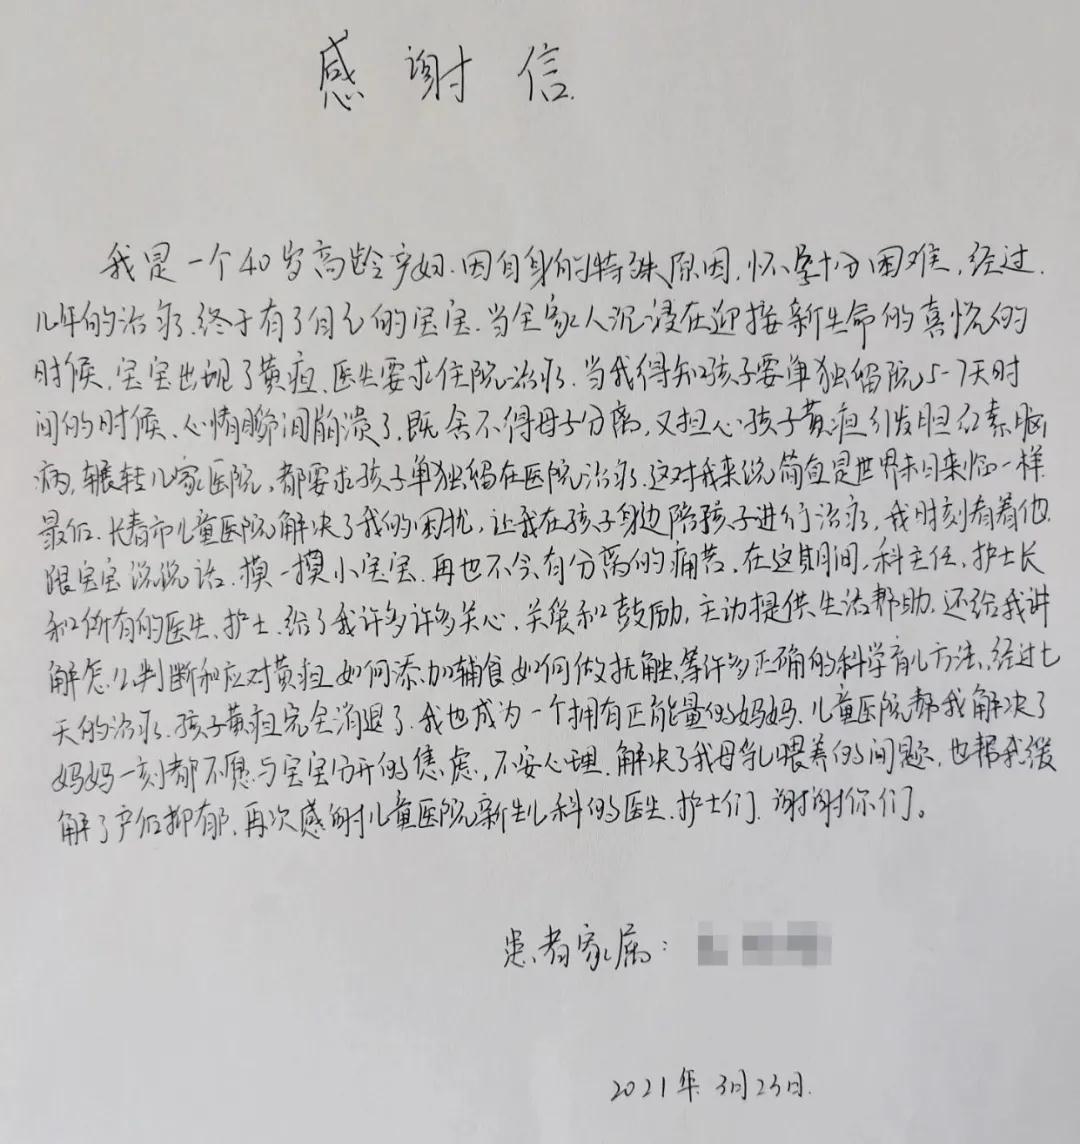 感谢信
我是一个40岁高龄产妇.因自身的特殊原因.怀孕十分困难,经过.
几年的治疗.终于有了自己的宝宝.当全家人沉浸在迎接新生命的喜悦的
时候.宝宝出现了黄疸.医生要求住院治疗.当我得知孩子要单独留院5-7天时
间的时候.心情瞬间崩溃了.既舍不得母子分离,又担心孩子黄疸引发胆红素脑
病,辗转几家医院,都要求孩子单独留在医院治疗.这对我来说简直是世界末日来临一样.
最后.长春市儿童医院解决了我的困扰,让我在孩子身边陪孩子进行治疗,我时刻看着他.
跟宝宝说说话.摸一摸小宝宝.再也不会有分离的痛苦.在这期间,科主任.护士长
和所有的医生.护士.给了我许多许多关心.关爱和鼓励,主动提供生活帮助.还给我讲
解怎么判断和应对黄疸.如何添加辅食.如何做抚触.等许多正确的科学育儿方法,经过七
天的治疗.孩子黄疸完全消退了.我也成为一个拥有正能量的妈妈.儿童医院帮我解决了
妈妈一刻都不愿与宝宝分开的焦虑,不安心理.解决了我母乳喂养的问题,也帮我缓
解了产后抑郁.再次感谢儿童医院新生儿科的医生.护士们.谢谢你们。
患者家属:
2021年3月23日.